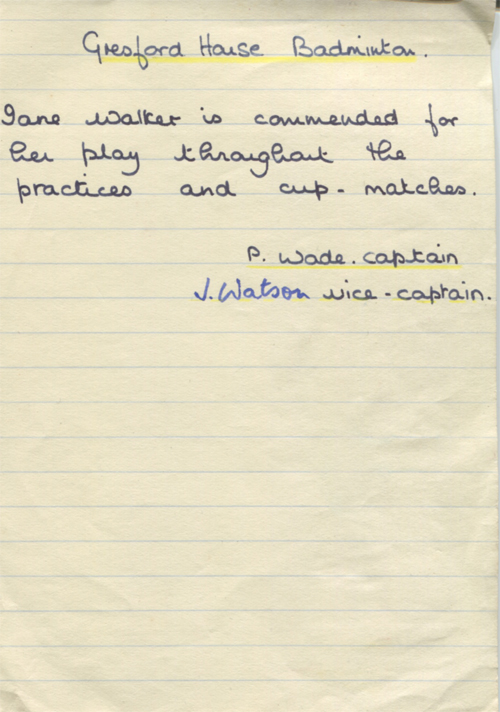 Gresford House Badminton.
Jane Walker is commended for
her play throughout the
practices and cup - matches.
P. Wade. captain
J. Watson vice - captain.